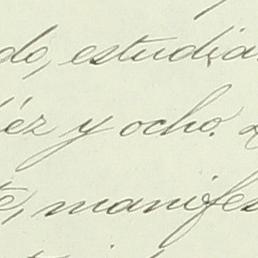 do, estudia
iéz y ocho.
te, manifes